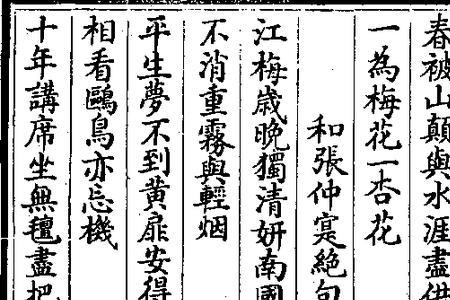 春被山顛與水涯盡供
一為梅花一杏花
和張仲寔絶句
江梅歲晚獨清妍南國
不消重霧與輕烟
平生夢不到黄扉安得
相看鷗鳥亦忘機
十年講席坐無氊盡把